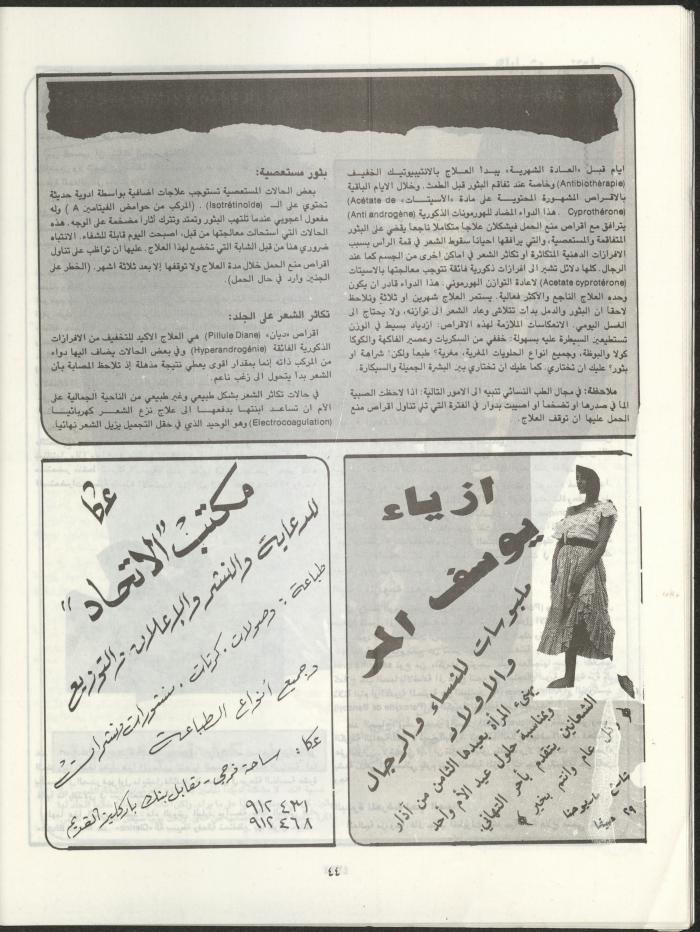 ايام قبل «العادة الشهرية» يبدأ العلاج بالانتيبيوتيك الخفيف
(Antibiothérapie) وخاصة عند تفاقم البثور قبل الطمث. وخلال الايام الباقية
بالاقراص المشهورة المحتوية على مادة «الاسيتات» (Acétate de
Cyprothérone) . هذا الدواء المضاد للهورمونات الذكورية (Anti androgène)
يترافق مع اقراص منع الحمل فيشكلان علاجاً متكاملاً ناجعاً يقضي على البثور
المتفاقمة والمستعصية، والتي يرافقها احيانا سقوط الشعر في قمة الرأس بسبب
الافرازات الدهنية المتكاثرة او تكاثر الشعر في اماكن اخرى من الجسم كما عند
الرجال. كلها دلائل تشير الى افرازات ذكورية فائقة تتوجب معالجتها بالاسيتات
(Acetate cyprotérone) لاعادة التوازن الهورموني. هذا الدواء قادر ان يكون
وحده العلاج الناجع والاكثر فعالية. يستمر العلاج شهرين او ثلاثة ونلاحظ
لاحقا ان البثور والدمل بدأت تتلاشى وعاد الشعر الى توازنه، ولا يحتاج الى
الغسل اليومي. الانعكاسات الملازمة لهذه الاقراص: ازدياد بسيط في الوزن
تستطيعين السيطرة عليه بسهولة: خففي من السكريات وعصير الفاكهة والكوكا
كولا والبوظة، وجميع انواع الحلويات المغرية، مغرية؟ طبعا ولكن: شراهة او
بثور؟ عليك ان تختاري. كما عليك ان تختاري بين البشرة الجميلة والسيكارة.
ملاحظة: في مجال الطب النسائي تنبيه الى الامور التالية: اذا لاحظت الصبية
الما في صدرها او تضخما او اصيبت بدوار في الفترة التي تلي تناول اقراص منع
الحمل عليها ان توقف العلاج.
بثور مستعصية:
بعض الحالات المستعصية تستوجب علاجات اضافية بواسطة ادوية حديثة
تحتوي على الـ (Isotrétinolde) . (المركب من حوامض الفيتامين A ) وله
مفعول اعجوبي عندما تلتهب البثور وتمتد وتترك آثارا مضخمة على الوجه. هذه
الحالات التي استحالت معالجتها من قبل، اصبحت اليوم قابلة للشفاء. الانتباه
ضروري هنا من قبل الشابة التي تخضع لهذا العلاج. عليها ان تواظب على تناول
اقراص منع الحمل خلال مدة العلاج ولا توقفها إلا بعد ثلاثة اشهر. (الخطر على
الجنين وارد في حال الحمل).
تكاثر الشعر على الجلد:
اقراص «ديان» (Pillule Diane) هي العلاج الاكيد للتخفيف من الافرازات
الذكورية الفائقة (Hyperandrogénie) وفي بعض الحالات يضاف اليها دواء
من المركب ذاته إنما بمقدار اقوى يعطي نتيجة مذهلة إذ تلاحظ المصابة بأن
الشعر بدأ يتحول الى زغب ناعم.
في حالات تكاثر الشعر بشكل طبيعي وغير طبيعي من الناحية الجمالية على
الأم ان تساعد ابنتها بدفعها الى علاج نزع الشعر كهربائيا
(Electrocoagulation) وهو الوحيد الذي في حقل التجميل يزيل الشعر نهائيا.
ازياء
يوسف المر
ملبوسات للنساء والرجال
والاولاد
يهنئ المرأة بعيدها الثامن من آذار
وبمناسبة حلول عيد الأم واحد
الشعانين يتقدم بأحر التهاني.
وكل عام وانتم بخير
عكا
مكتب "الاتحاد"
للدعاية والنشر والاعلان والتوزيع
طباعة: وصولات. كرتات. منشورات ونشرات
وجميع أنواع الطباعة
عكا: ساحة فرحي - مقابل بنك باركليز القديم
٩١٢٤٣١
٩١٢٤٦٨
٤٤